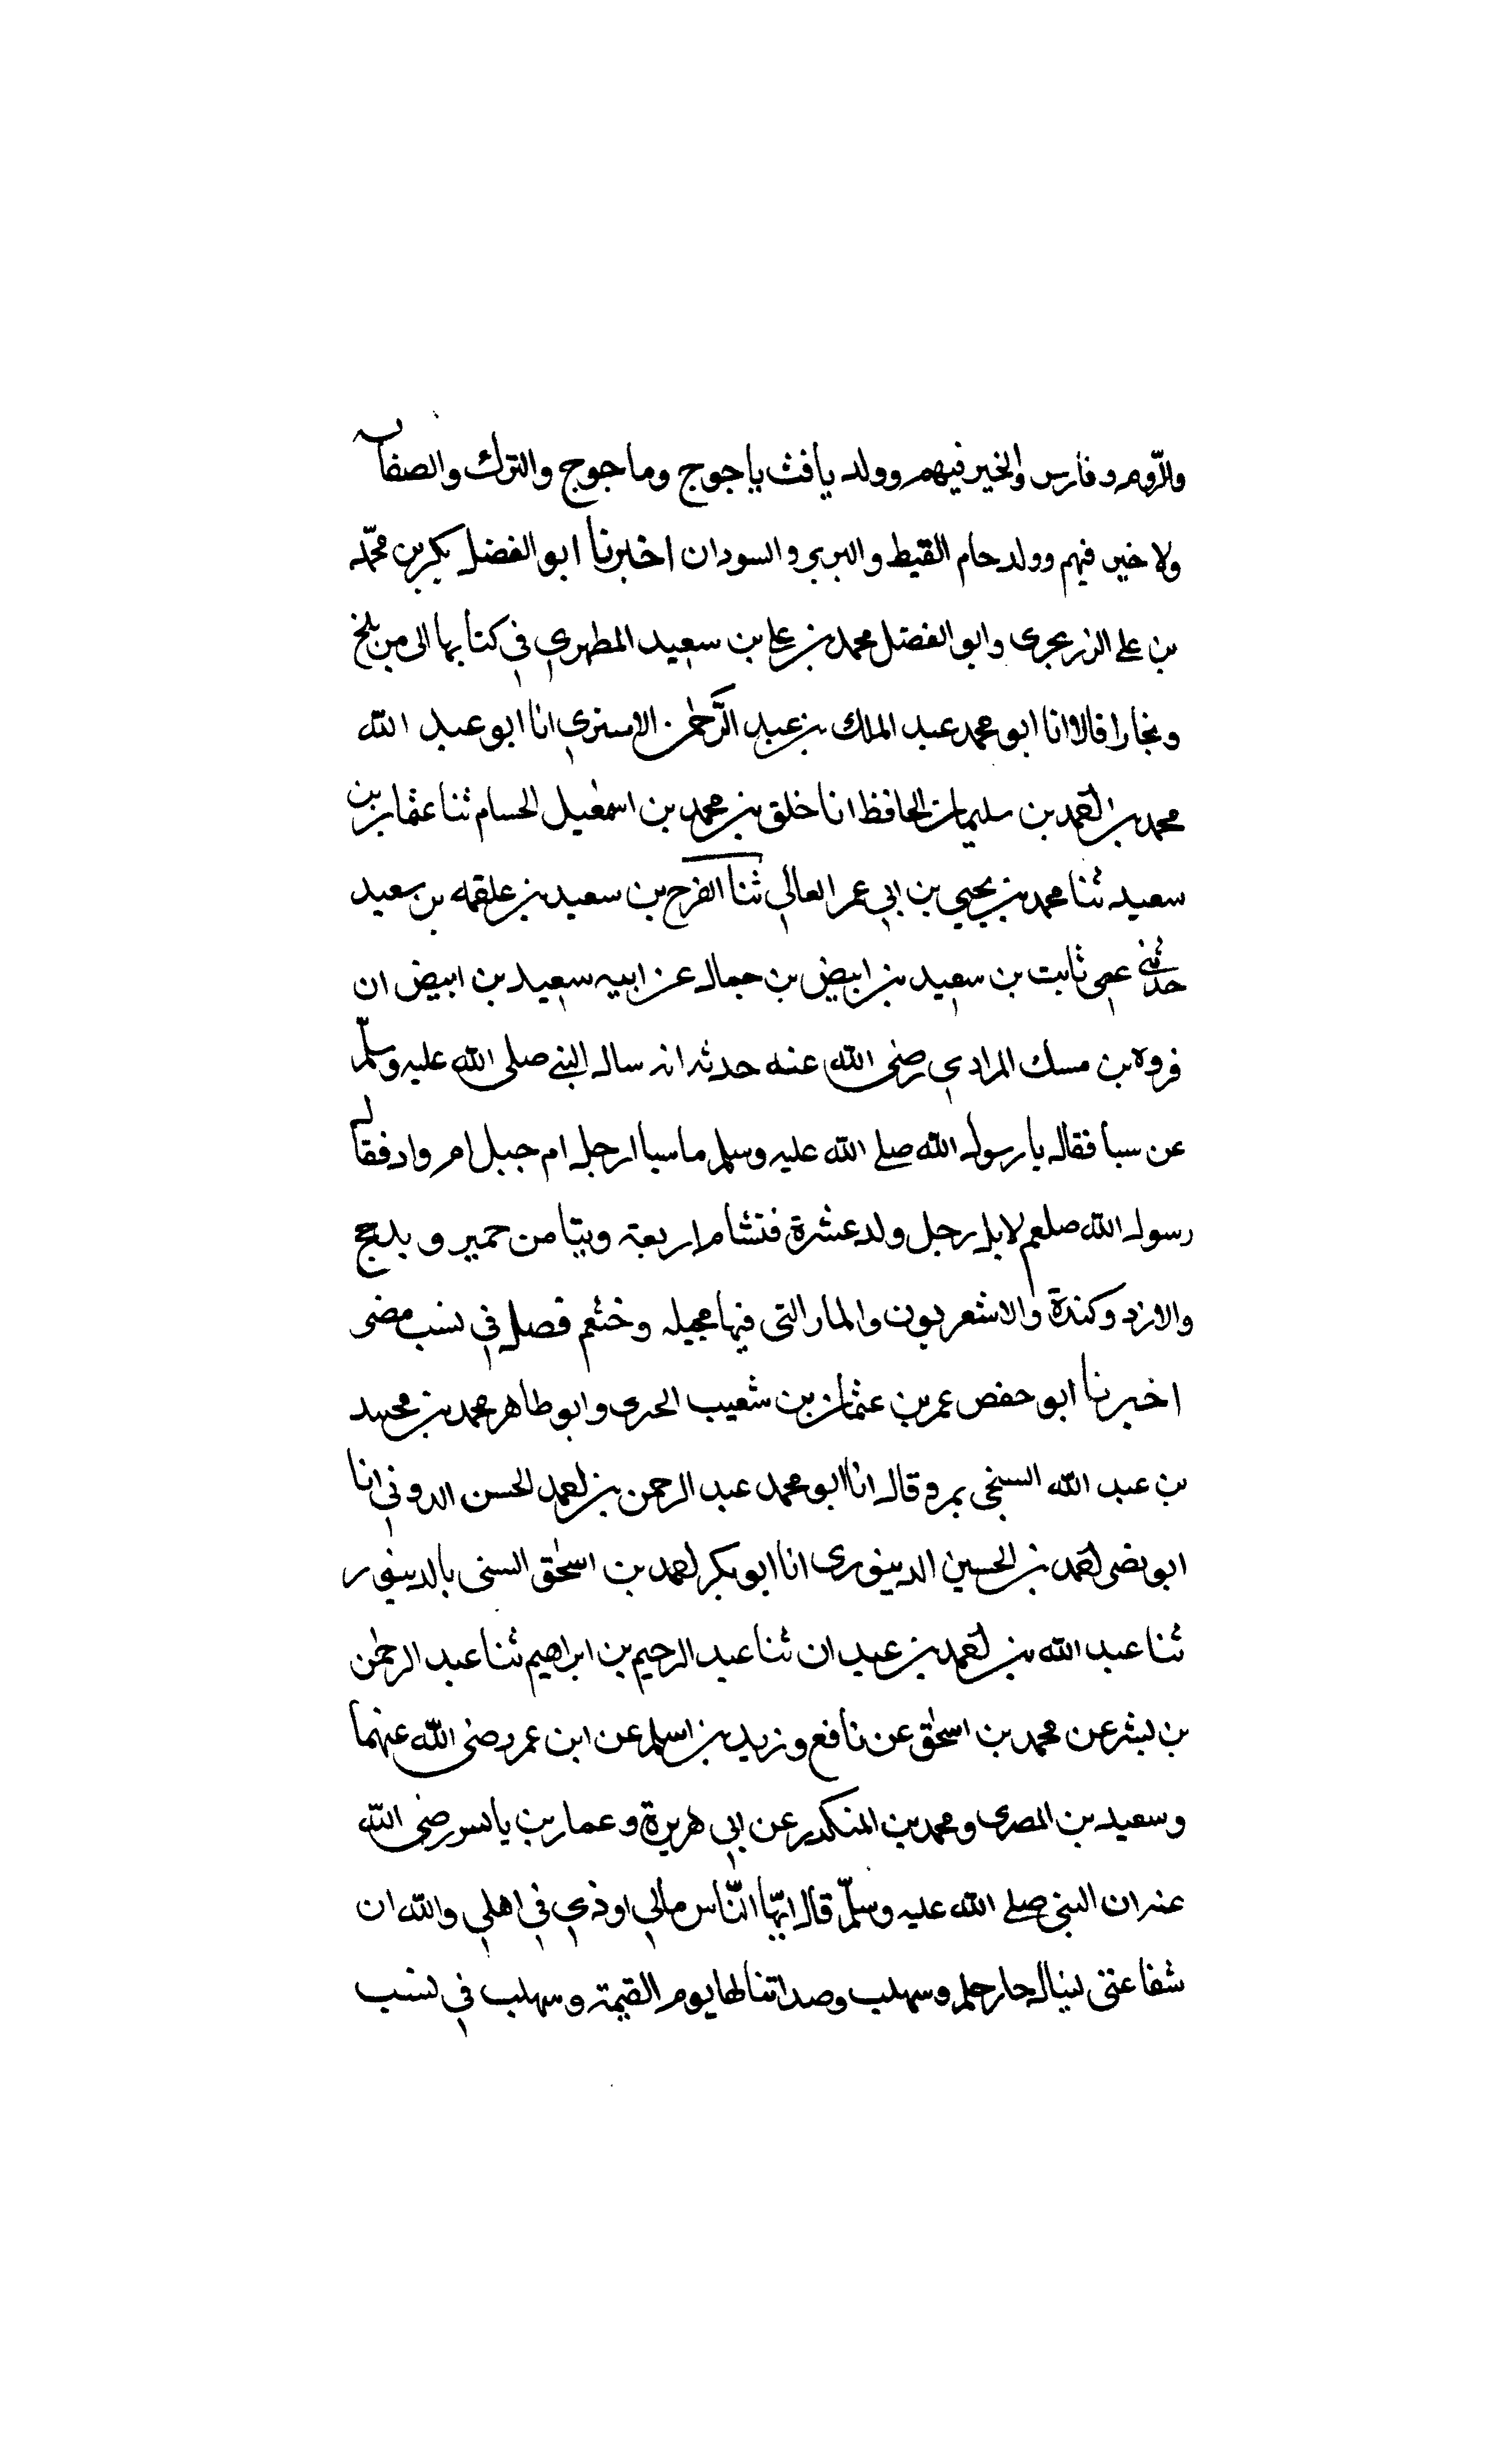 والرّوم و فارس والخير فيهم وولد يافث ياجوج وماجوج والترك والصفا
ولا خير فيهم وولد حام القيط والبربر والسودان اخبرنا ابو الفضل بكر بن محمّد
بن علي الزرعجرى وابو الفضل محمد بن علي بن سعيد المطهري في كتابها الى من بلخ
وبخارا قالا انا ابو محمد عبد الملك بن عبد الرَّحمٰن الاسنري انا ابو عبد الله
محمد بن احمد بن سليمان الحافظ انا خلق بن محمد بن اسمٰعيل الحسام ثنا عثمان بن
سعيد ثنا محمد بن يحيي بن ابي عمر العالي ثنا الفرح بن سعيد بن علقمه بن سعيد
حدثني عمي ثابت بن سعيد بن ابيض بن جمال عن ابيه سعيد بن ابيض ان
فروه بن مسك المرادي رضى الله عنه حدثه انه سال النبي صلى الله عليه وسلّم
عن سبا فقال يا رسول الله صلي الله عليه وسلم ما سبا ارجل ام جبل ام واد فقال
رسول الله صلعم لا بل رجل ولد عشرة فتشام اربعة وتيا من حمير و بدحج
والازد وكندة والاشعريون والمار التى فيها مجيله وخثعم فصل في نسب مضى
اخبرنا ابو حفص عمر بن عثمان بن شعيب الحرى وابو طاهر محمد بن محمد
بن عبد الله السنجى بمرو قال انا ابو محمد عبد الرحمن بن احمد الحسن الدوني انا
ابو نضى احمد بن الحسين الدينورى انا ابو بكر احمد بن اسحٰق السنى بالدينور
ثنا عبد الله بن احمد بن عبدان ثنا عبد الرحيم بن ابراهيم ثنا عبد الرحمٰن
بن بشر عن محمد بن اسحٰق عن نافع وزيد بن اسلم عن ابن عمر رضى الله عنهما
وسعيد بن المصرى ومحمد بن المنكدر عن ابي هريرة وعمار بن ياسر رضى الله
عنه ان النبى صلي الله عليه وسلّم قال ايّها النّاس مالي اوذي في اهلي والله ان
شفاعتى لينال حا وحلم وسهلب وصداتنا لها يوم القيمة وسهلب في نسب